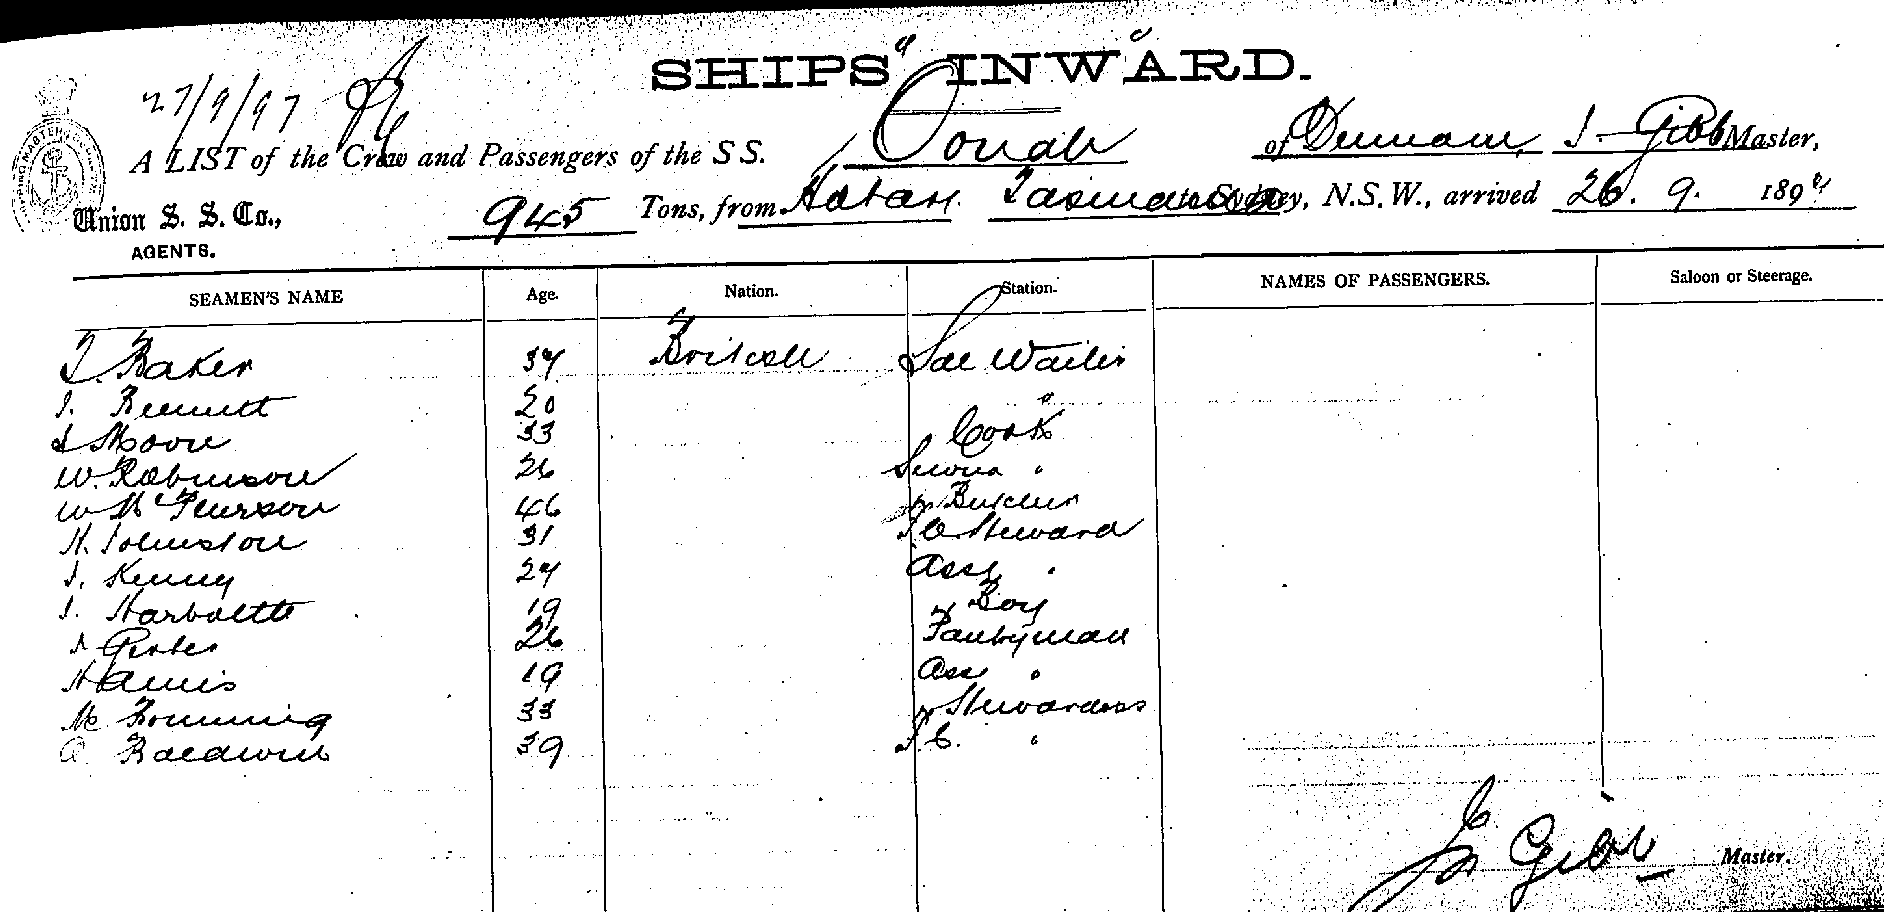 SHIPS INWARD.
27/9/97
A LIST of the Crew and Passengers of the S S. Oonah of Dunedin, J. Gibb Master,
Union S. S. Co., AGENTS. 945 Tons, from Hobart Tasmania to Sydney, N.S.W., arrived 26. 9. 1897
SEAMEN'S NAME Age. Nation. Station. NAMES OF PASSENGERS. Saloon or Steerage.
T. Baker 37 British Sal Waiter
J. Bennett 20 "
Moore 33 Cook
W. Robinson 26 Second "
W McPherson 46 Butcher
H. Johnston 31 Steward
J. Kenny 27 Asst "
J. 19 Boy
26 Pantryman
Harris 19 Ass "
33 Stewardess
A Baldwin 39 "
Gibb Master.